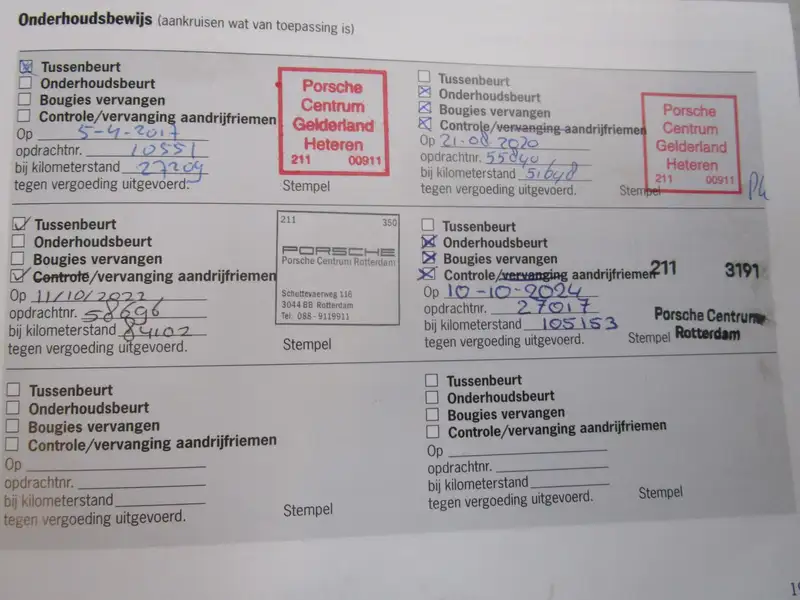 Onderhoudsbewijs (aankruisen wat van toepassing is)
Tussenbeurt
Onderhoudsbeurt
Bougies vervangen
Controle/vervanging aandrijfriemen
Op 5-4-2017
opdrachtnr. 10551
bij kilometerstand 27209
tegen vergoeding uitgevoerd.
Stempel
Porsche
Centrum
Gelderland
Heteren
211 00911
Tussenbeurt
Onderhoudsbeurt
Bougies vervangen
Controle/vervanging aandrijfriemen
Op 21-08-2020
opdrachtnr. 55840
bij kilometerstand 51648
tegen vergoeding uitgevoerd.
Stempel
Porsche
Centrum
Gelderland
Heteren
211 00911
Tussenbeurt
Onderhoudsbeurt
Bougies vervangen
Controle/vervanging aandrijfriemen
Op 11/10/2022
opdrachtnr. 58696
bij kilometerstand 84102
tegen vergoeding uitgevoerd.
Stempel
211 350
PORSCHE
Porsche Centrum Rotterdam
3044 BB Rotterdam
Tel: 088-9119911
Tussenbeurt
Onderhoudsbeurt
Bougies vervangen
Controle/vervanging aandrijfriemen
Op 10-10-2024
opdrachtnr. 27017
bij kilometerstand 105153
tegen vergoeding uitgevoerd.
Stempel
211 3191
Porsche Centrum
Rotterdam
Tussenbeurt
Onderhoudsbeurt
Bougies vervangen
Controle/vervanging aandrijfriemen
Op
opdrachtnr.
bij kilometerstand
tegen vergoeding uitgevoerd.
Stempel
Tussenbeurt
Onderhoudsbeurt
Bougies vervangen
Controle/vervanging aandrijfriemen
Op
opdrachtnr.
bij kilometerstand
tegen vergoeding uitgevoerd.
Stempel